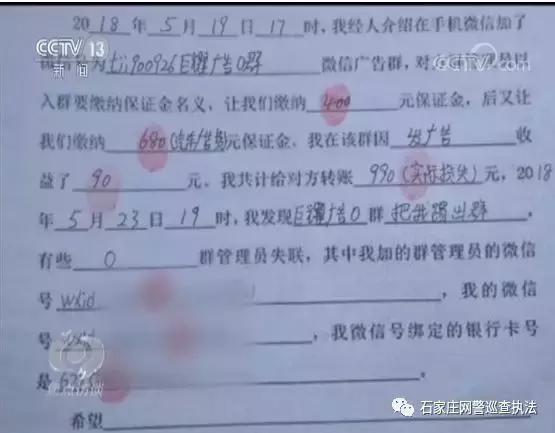 2018年5月19日17时，我经人介绍在手机微信加了
CCTV 13
新闻
CCTV.com
900926巨耀广告0群 微信广告群，对
入群要缴纳保证金名义，让我们缴纳400元保证金，后又让
我们缴纳680(汽车广告费)元保证金，我在该群因发广告收
益了90元。我共计给对方转账990(实际损失)元，2018
年5月23日19时，我发现巨耀广告0群把我踢出群，
有些0群管理员失联，其中我加的群管理员的微信
号wxid，我的微信
号，我微信号绑定的银行卡号
是
希望
石家庄网警巡查执法